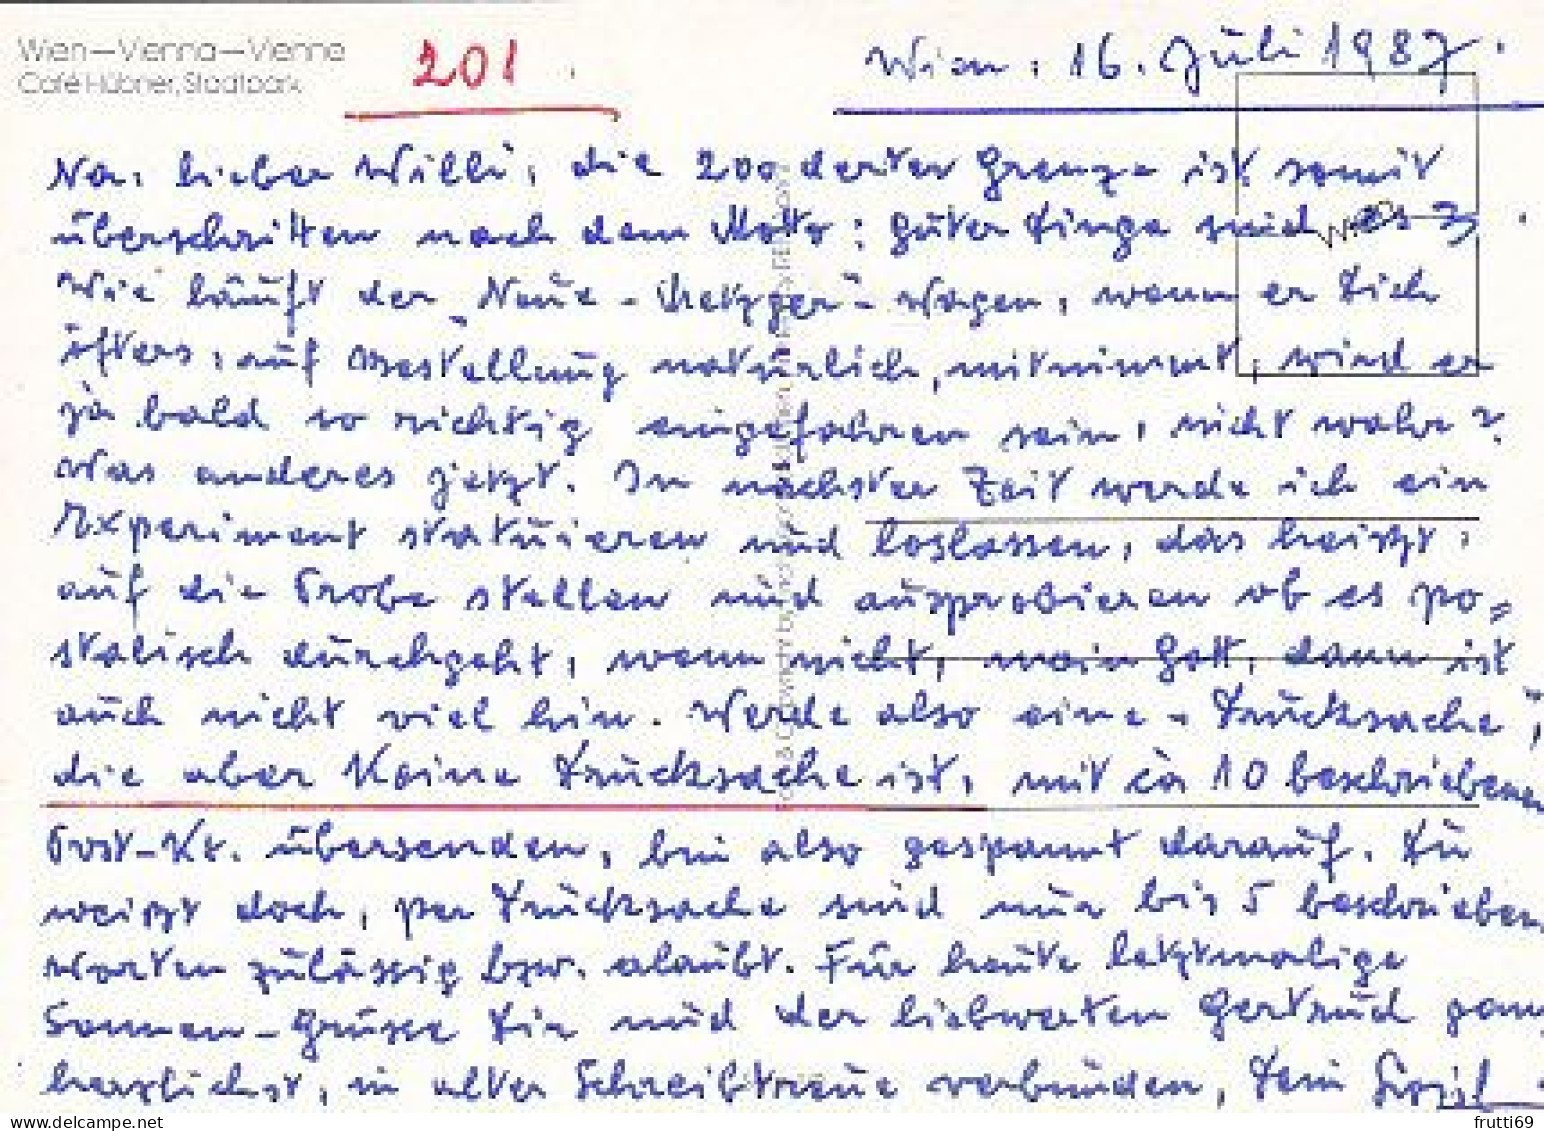 Wien—Vienna—Vienne
Café Hübner, Stadtpark
201.
Wien, 16. Juli 1987.
Na, lieber Willi, die 200derter Grenze ist somit
überschritten nach dem Motto: Guter Dinge sind es 3.
Wie läuft der "Neue-Metzger"-Wagen, wenn er Dich
öfters, auf Bestellung natürlich, mitnimmt, wird er
ja bald so richtig eingefahren sein, nicht wahr?
Was anderes jetzt. In nächster Zeit werde ich ein
Experiment statuieren und loslassen, das heisst,
auf die Probe stellen und ausprobieren ob es po=
stalisch durchgeht, wenn nicht, mein Gott, dann ist
auch nicht viel hin. Werde also eine "Drucksache",
die aber keine Drucksache ist, mit ca 10 beschriebenen
Post-Kt. übersenden, bin also gespannt darauf. Du
weisst doch, per Drucksache sind nur bis 5 beschrieben
Worten zulässig bzw. erlaubt. Für heute letztmalige
Sonnen-Grüsse Dir und der liebwerten Gertrud ganz
herzlichst, in alter Schreibtreue verbunden, Dein
www.delcampe.net
frutti69